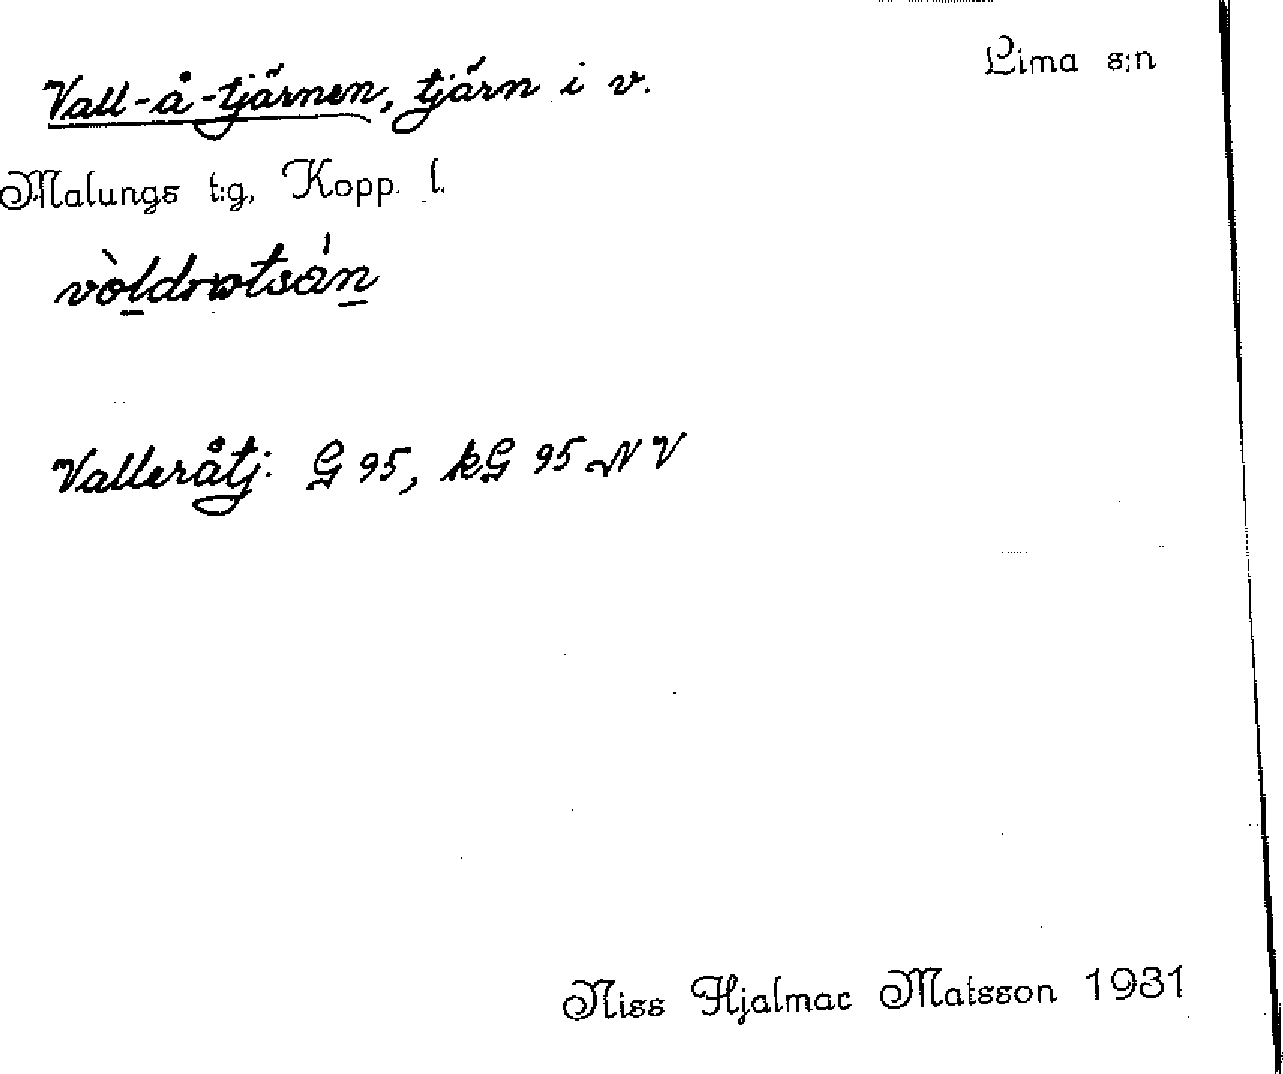 Vall-å-tjärnen, tjärn i v.
Lima s:n
Malungs t:g, Kopp. l.
Valleråtj: G 95, kG 95 NV
Niss Hjalmar Matsson 1931